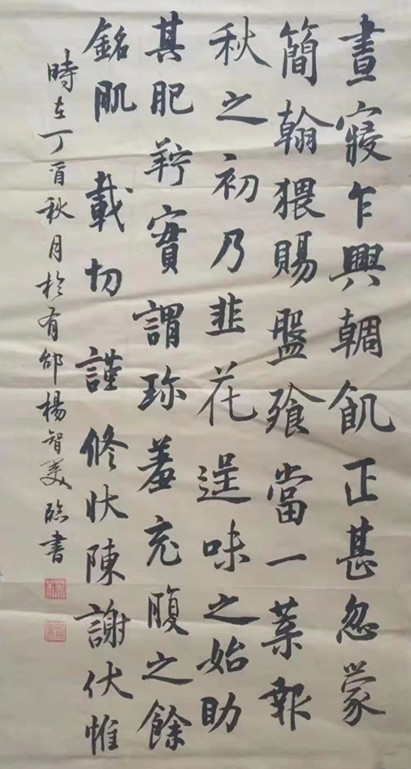 晝寢乍興輖飢正甚忽蒙
簡翰猥賜盤飧當一葉報
秋之初乃韭花逞味之始助
其肥羜實謂珍羞充腹之餘
銘肌載切謹修狀陳謝伏惟
時在丁酉秋月於有邰楊智美臨書